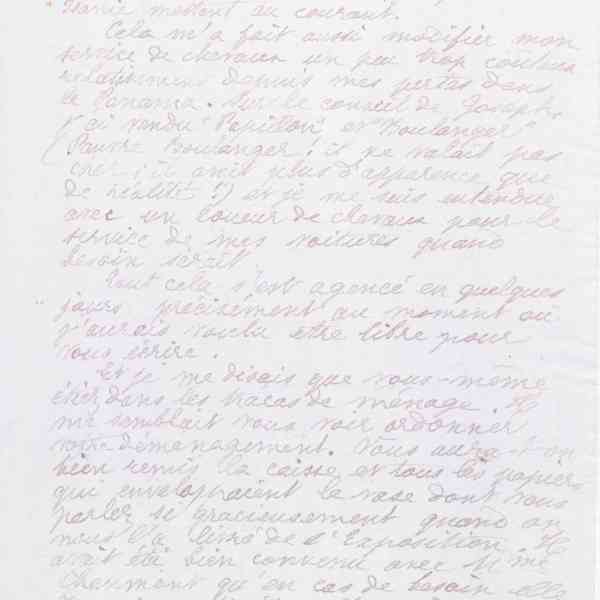 mettent au courant.
Cela m'a fait aussi modifier mon
service de chevaux un peu trop coûteux
relativement depuis mes pertes dans
le Panama. Sur le conseil de Joseph,
j'ai vendu "Papillon" et "Boulanger"
(Pauvre Boulanger! il ne valait pas
cher; il avait plus d'apparence que
de réalité!) et je me suis entendue
avec un loueur de chevaux pour le
service de mes voitures quand
besoin serait.
Tout cela s'est agencé en quelques
jours précisément au moment où
j'aurais voulu être libre pour
vous écrire.
Et je me disais que vous-même
étiez dans les tracas de ménage. Il
me semblait vous voir ordonner
votre déménagement. Vous aura-t-on
bien remis la caisse et tous les papiers
qui enveloppaient le vase dont vous
parlez si gracieusement quand on
vous l'a livré de l'Exposition. Il
avait été bien convenu avec Mme
Chaumont qu'en cas de besoin elle